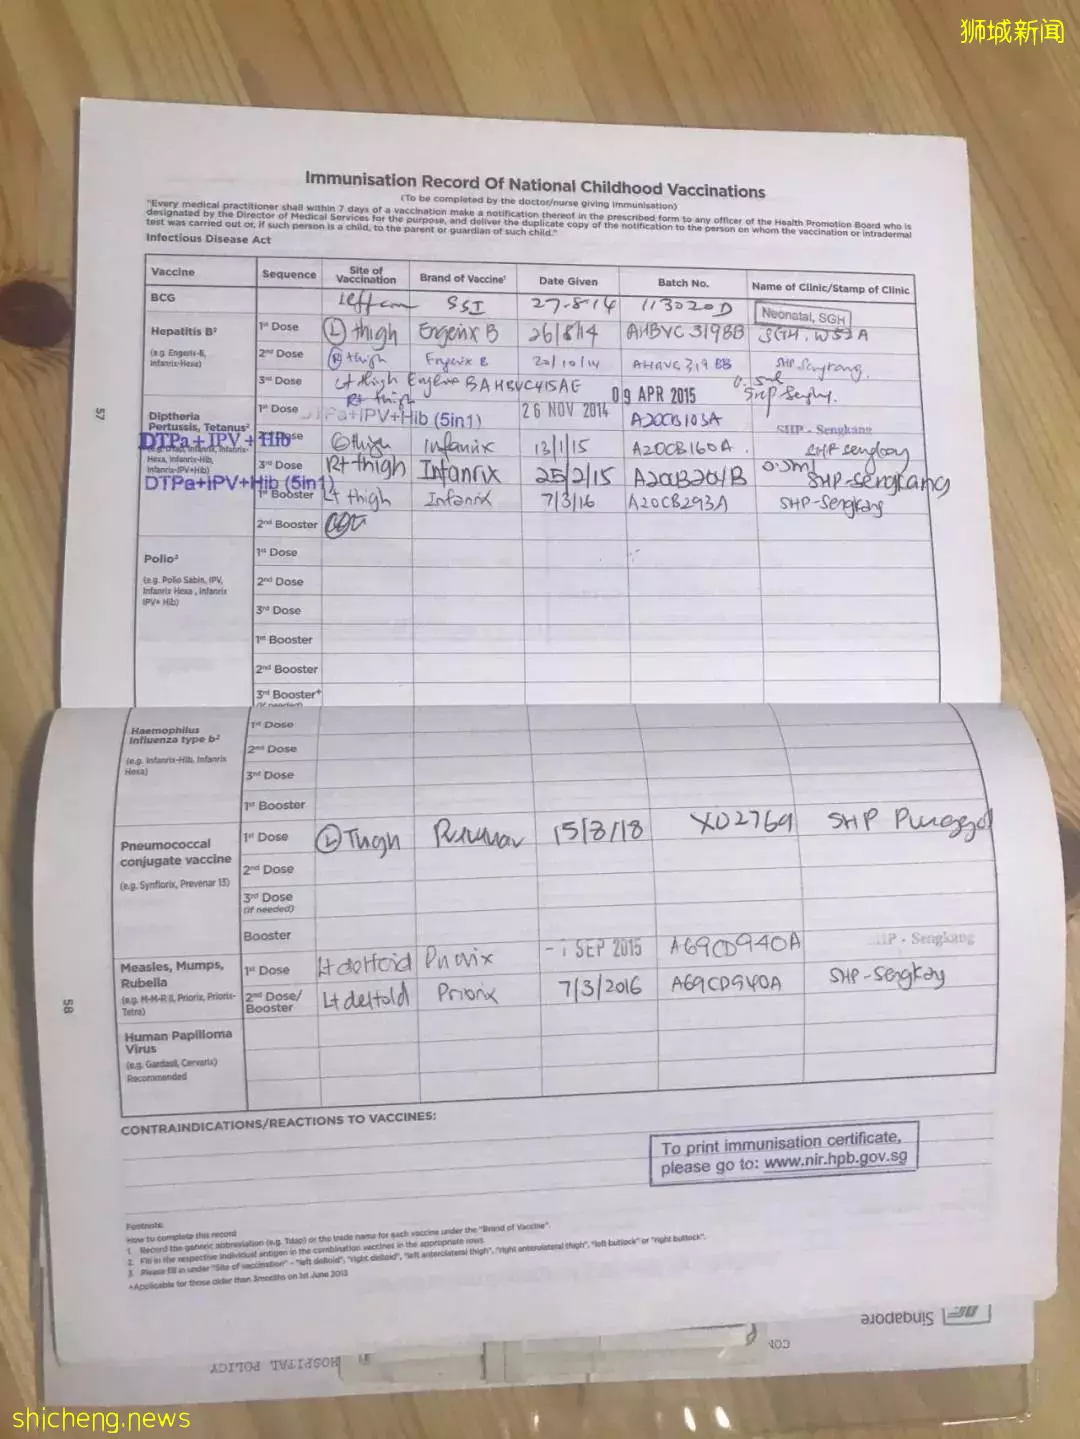 狮城新闻
Immunisation Record Of National Childhood Vaccinations
(To be completed by the doctor/nurse giving immunisation)
"Every medical practitioner shall within 7 days of a vaccination make a notification thereof in the prescribed form to any officer of the Health Promotion Board who is
designated by the Director of Medical Services for the purpose, and deliver the duplicate copy of the notification to the person on whom the vaccination or intradermal
test was carried out or, if such person is a child, to the parent or guardian of such child."
Infectious Disease Act
Vaccine Sequence Site of Vaccination Brand of Vaccine¹ Date Given Batch No. Name of Clinic/Stamp of Clinic
BCG SSI 27-8-14 113020D Neonatal, SGH
Hepatitis B² 1st Dose (L) thigh Engerix B 26/8/14 AHBVC 319BB SGH. W52A
(e.g. Engerix-B, Infanrix-Hexa) 2nd Dose (R) thigh Engerix B 20/10/14 AHBVC 319 BB SHP Sengkang.
3rd Dose Lt thigh Engerix B AHBVC415AE 09 APR 2015 0.5ml SHP Sengkang
57
Rt thigh
Diptheria Pertussis, Tetanus² 1st Dose DTPa+IPV+Hib (5in1) 26 NOV 2014 A20CB103A SHP - Sengkang
DTPa+IPV+Hib 2nd Dose thigh Infanrix 13/1/15 A20CB160A. SHP Sengkang
Hexa, Infanrix-Hib, Infanrix-IPV+Hib) 3rd Dose Rt thigh Infanrix 25/2/15 A20CB201B 0.5ml SHP-Sengkang
DTPa+IPV+Hib (5in1)
1st Booster Lt thigh Infanrix 7/3/16 A20CB293A SHP-Sengkang
2nd Booster
Polio² 1st Dose
(e.g. Polio Sabin, IPV, Infanrix Hexa, Infanrix IPV+ Hib) 2nd Dose
3rd Dose
1st Booster
2nd Booster
3rd Booster+
Haemophilus Influenza type b² 1st Dose
(e.g. Infanrix-Hib, Infanrix Hexa) 2nd Dose
3rd Dose
1st Booster
Pneumococcal conjugate vaccine 1st Dose (L) Thigh 15/8/18 X02769 SHP Punggol
(e.g. Synflorix, Prevenar 13) 2nd Dose
3rd Dose (if needed)
Booster
Measles, Mumps, Rubella 1st Dose Lt deltoid Priorix - 1 SEP 2015 A69CD940A SHP - Sengkang
(e.g. M-M-R II, Priorix, Priorix-Tetra) 2nd Dose/ Booster Lt deltoid Priorix 7/3/2016 A69CD940A SHP-Sengkang
58
Human Papilloma Virus
(e.g. Gardasil, Cervarix)
Recommended
CONTRAINDICATIONS/REACTIONS TO VACCINES:
To print immunisation certificate,
please go to: www.nir.hpb.gov.sg
Footnote:
How to complete this record
1. Record the generic abbreviation (e.g. Tdap) or the trade name for each vaccine under the "Brand of Vaccine".
2. Fill in the respective individual antigen in the combination vaccines in the appropriate rows.
3. Please fill in under "Site of vaccination" - "left deltoid", "right deltoid", "left anterolateral thigh", "right anterolateral thigh", "left buttock" or "right buttock".
+Applicable for those older than 3months on 1st June 2013
Singapore
HOSPITAL POLICY
shicheng.news